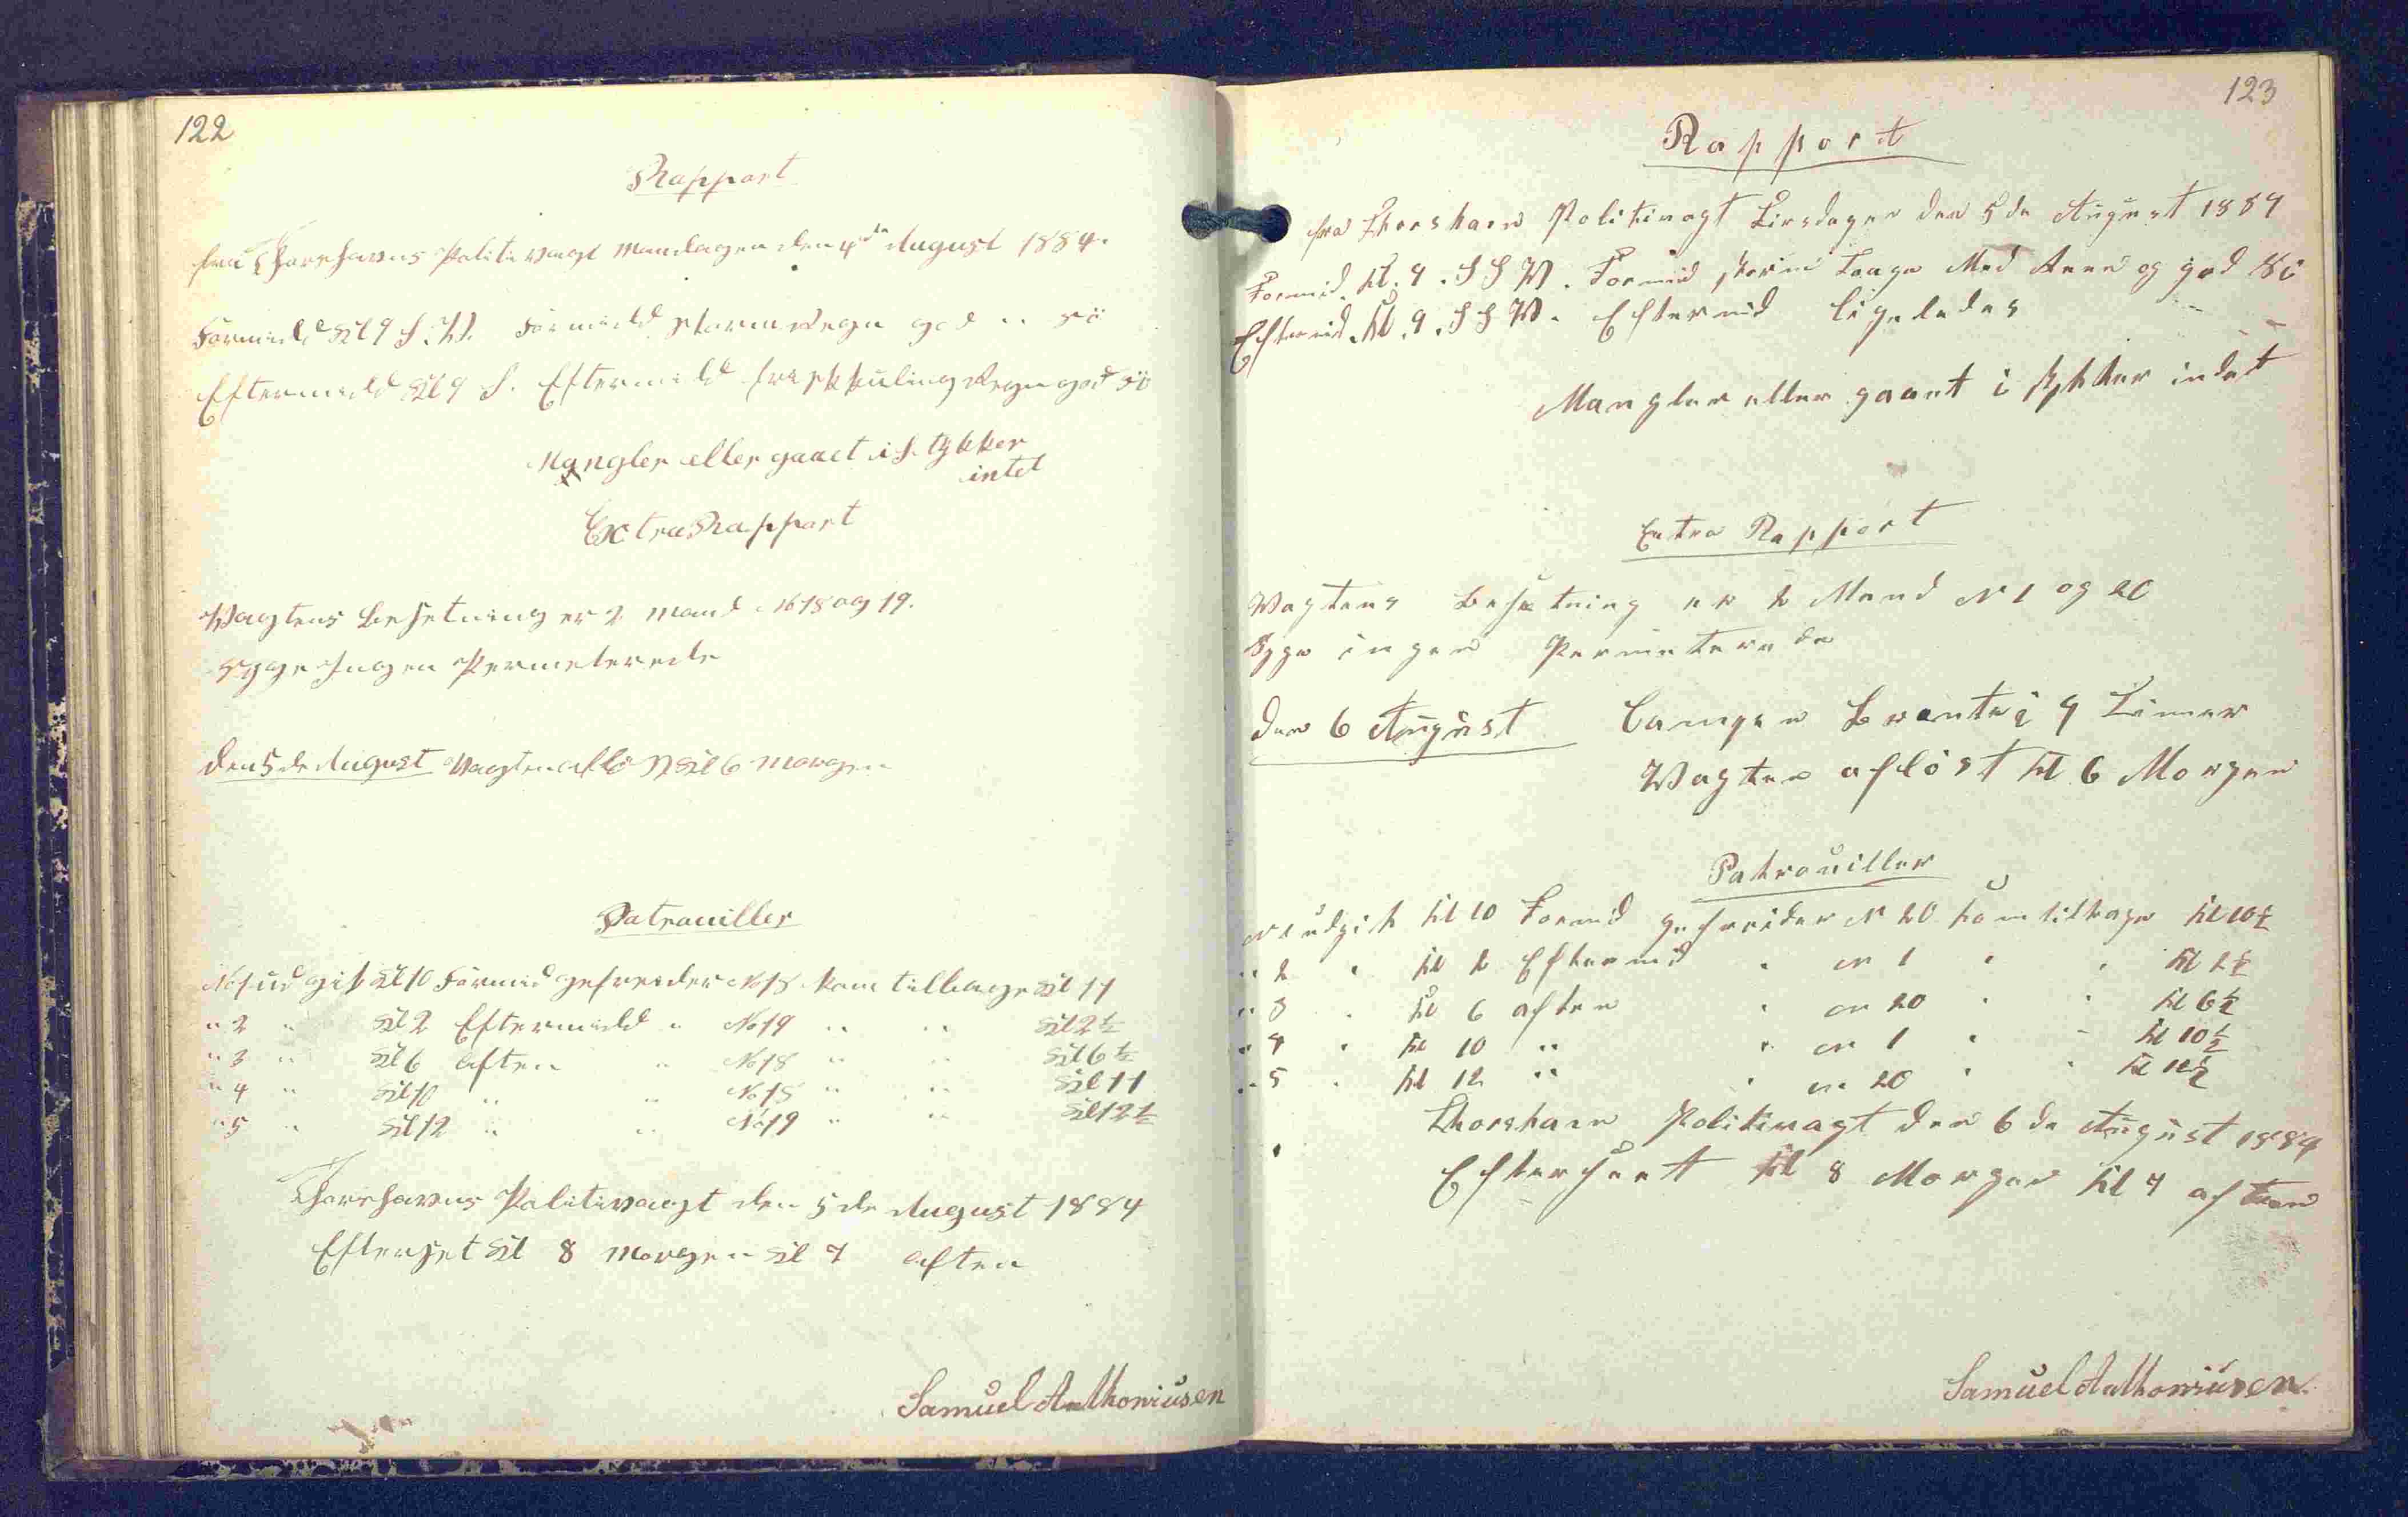 122
Rapport
fra Thorshavns Politivagt Mandagen den 4de August 1884.
Formidd Kl 9 S.W. Formidd storm Regn god .. Sö
Eftermidd Kl 9 S. Eftermidd frisk kuling Regn god Sö
Mangler eller gaaet i Stykker
intet
Extra Rapport
Vagtens Besetning er 2 Mand No 18 og 19.
Syge Ingen Permeterede
den 5de August Vagten aflöst Kl 6 Morgen
Patrouiller
No 1 udgik Kl 10 Formid gefreider No 18 kom tilbage Kl 11
" 2 " Kl 2 Eftermidd " No 19 " " Kl 2 1/2
" 3 " Kl 6 Aften " No 18 " " Kl 6 1/2
" 4 " Kl 10 " " No 18 " " Kl 11
" 5 " Kl 12 " " No 19 " " Kl 12 1/2
Thorshavns Politivagt den 5de August 1884
Efterset Kl 8 Morgen Kl 7 Aften
Samuel Anthoniusen
123
Rapport
fra Thorshavn Politivagt Tirsdagen den 5de August 1884
Formid. Kl. 9. S S W. Formid storm Taage Med Rean og god Sö
Eftermid. Kl. 9. S S W. Eftermid ligeledes " "
Mangler eller gaaet i stykker indet
Extra Rapport
Wagtens Besetning er 2 Mand N 1 og 20
Syge ingen Permeterede
den 6 August Lampen Brente i 4 Timer
Wagten aflöst Kl 6 Morgen
Patrouiller
N 1 udgik Kl 10 Formid gefreider N 20 kom tilbage Kl 10 1/2
" 2 " Kl 2 Eftermid " N 1 " " Kl 2 1/2
" 3 " Kl 6 aften " N 20 " " Kl 6 1/2
" 4 " Kl 10 " " N 1 " " Kl 10 1/2
" 5 " Kl 12 " " N 20 " " Kl 12 1/2
Thorshavn Politivagt den 6de August 1884
Efterseet Kl 8 Morgen Kl 7 aften
Samuel Anthoniusen